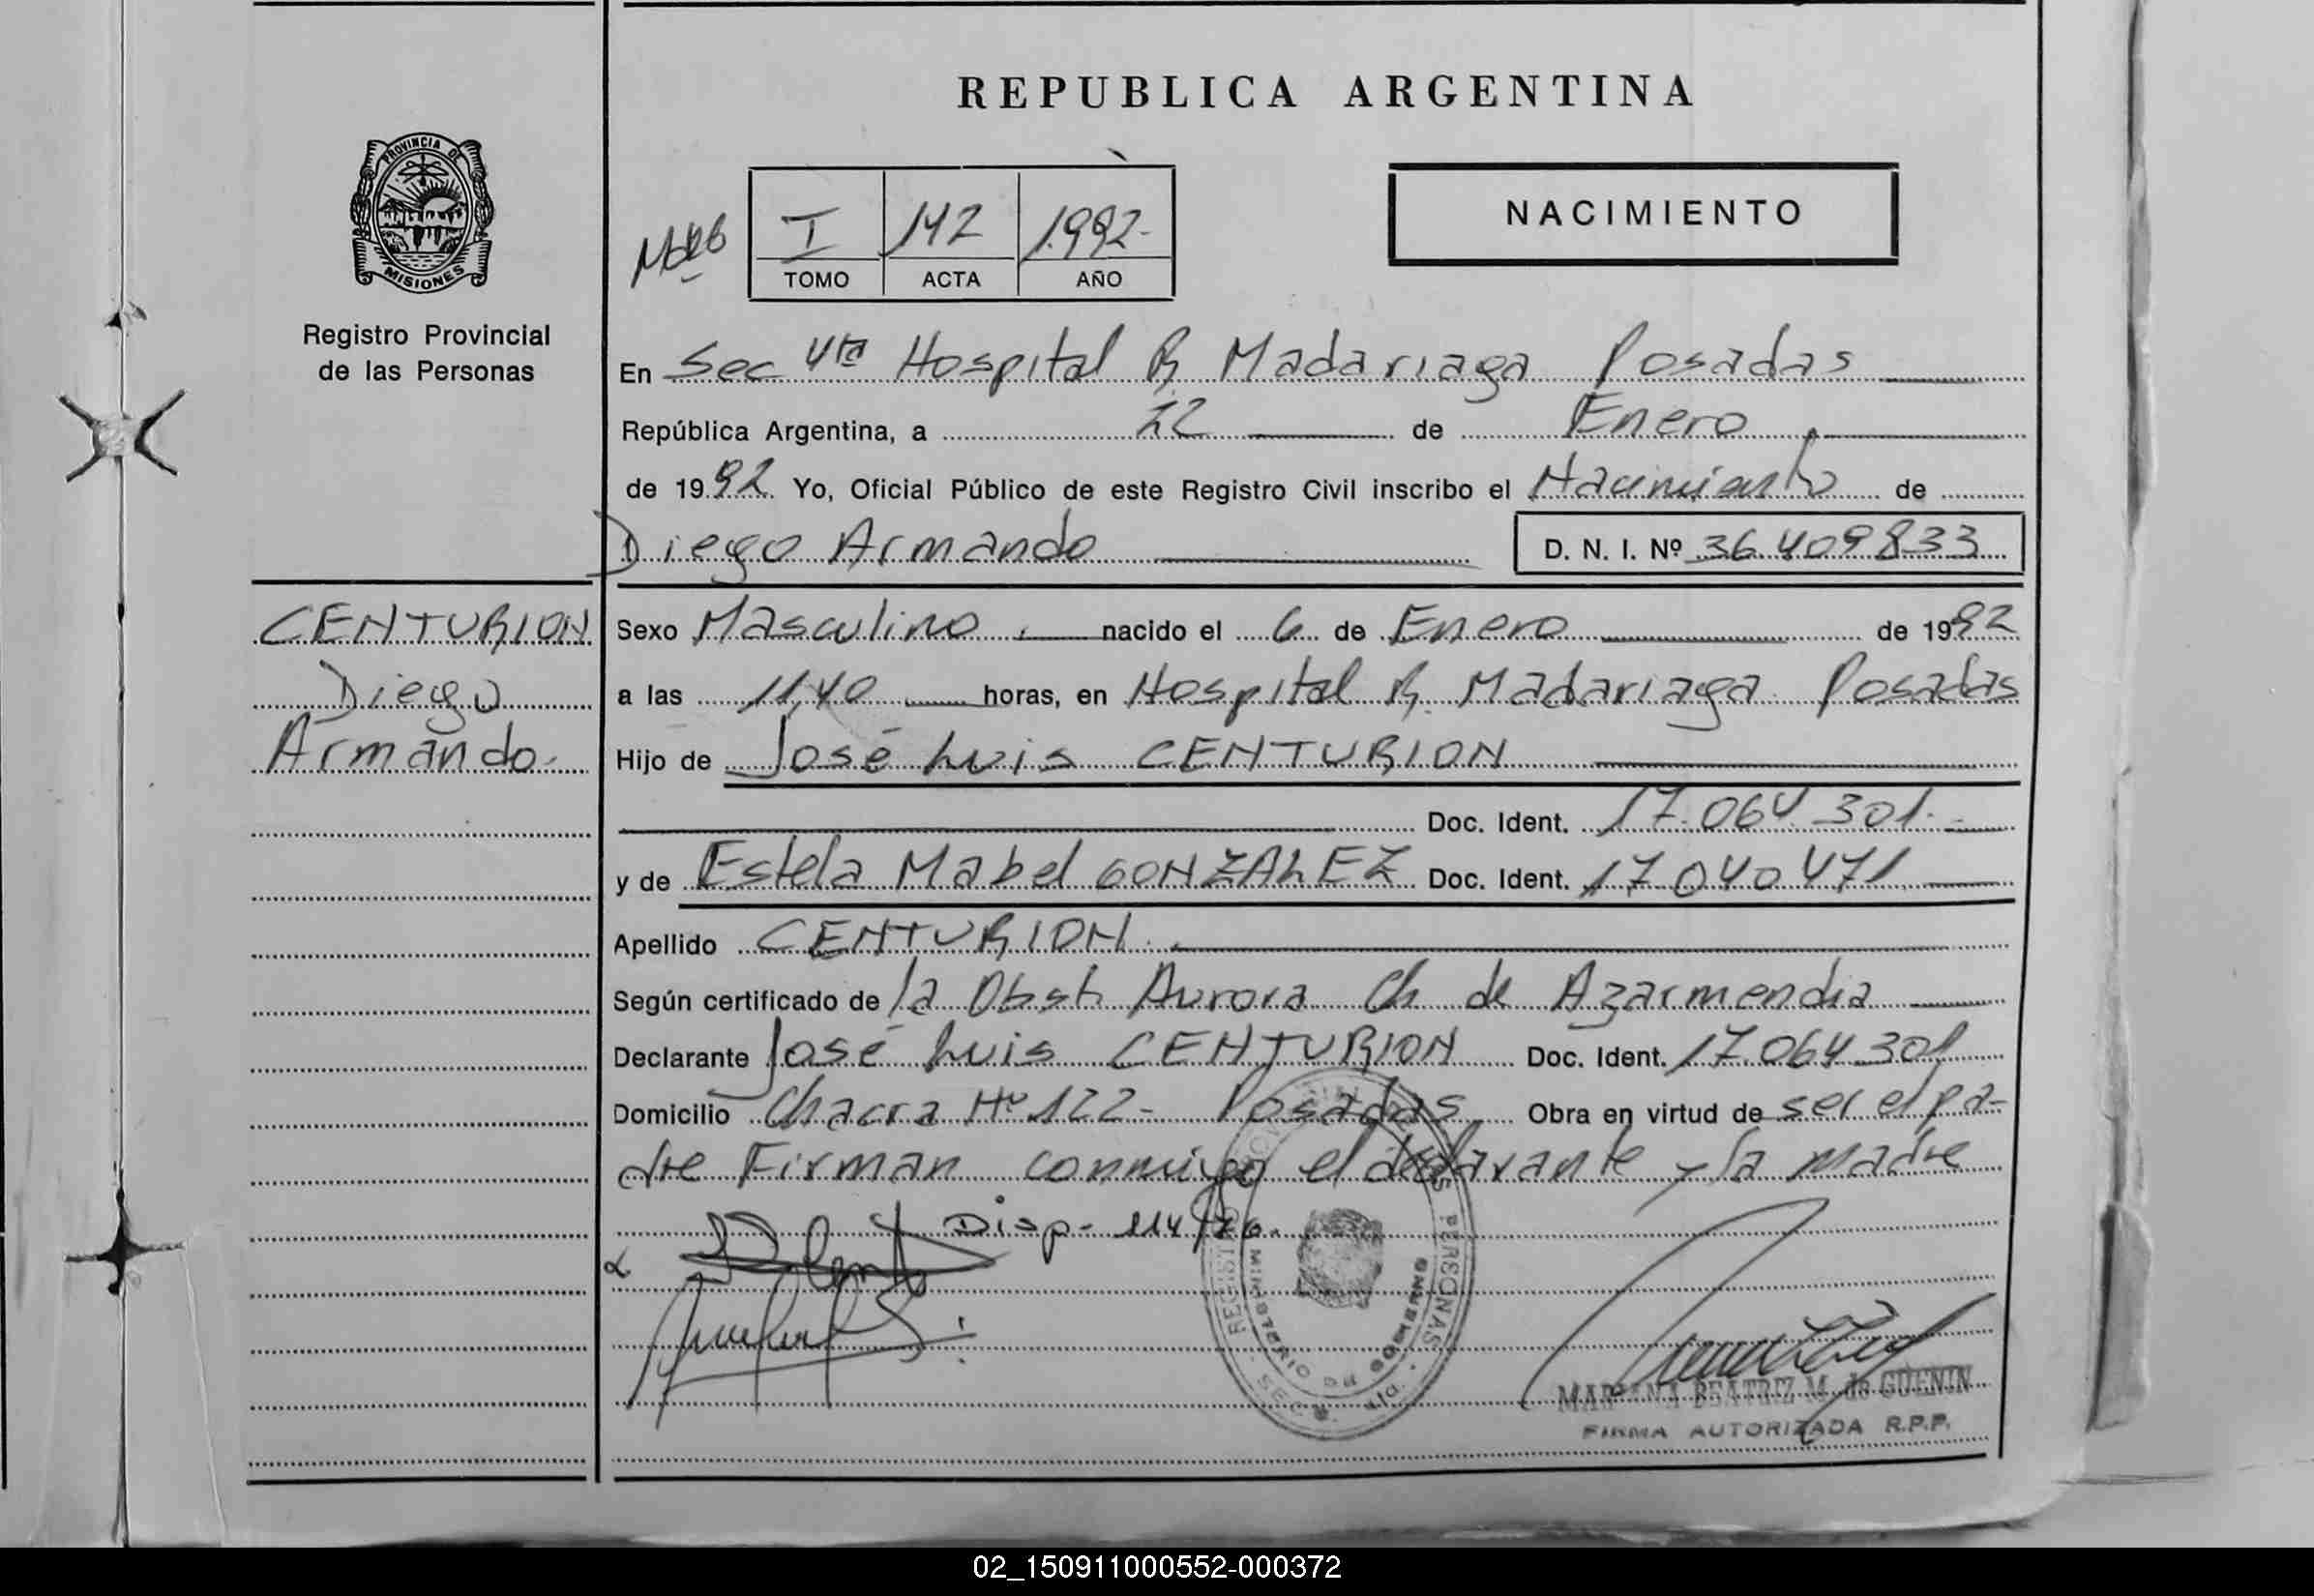 REPUBLICA ARGENTINA
PROVINCIA DE
MISIONES
Registro Provincial
de las Personas
I 142 1.992-
TOMO ACTA AÑO
NACIMIENTO
En Sec 4ta Hospital R Madariaga Posadas
República Argentina, a 22 de Enero
de 1992 Yo, Oficial Público de este Registro Civil inscribo el Nacimiento de
Diego Armando D. N. I. Nº 36.409833
CENTURION
Diego
Armando.
Sexo Masculino nacido el 6 de Enero de 1992
a las 11,40 horas, en Hospital R. Madariaga Posadas
Hijo de José Luis CENTURION
Doc. Ident. 17.064.301.-
y de Estela Mabel GONZALEZ Doc. Ident. 17.040.471
Apellido CENTURION.
Según certificado de la Obst. Aurora Ch de Azarmendia
Declarante José Luis CENTURION Doc. Ident. 17.064.301
Domicilio Chacra Nº 122- Posadas Obra en virtud de ser el pa-
dre Firman conmigo el declarante y la madre
Disp- 114/76.
MINISTERIO DE GOBIERNO
PERSONAS
BEATRIZ M. de GUENIN
FIRMA AUTORIZADA R.P.P.
02_150911000552-000372